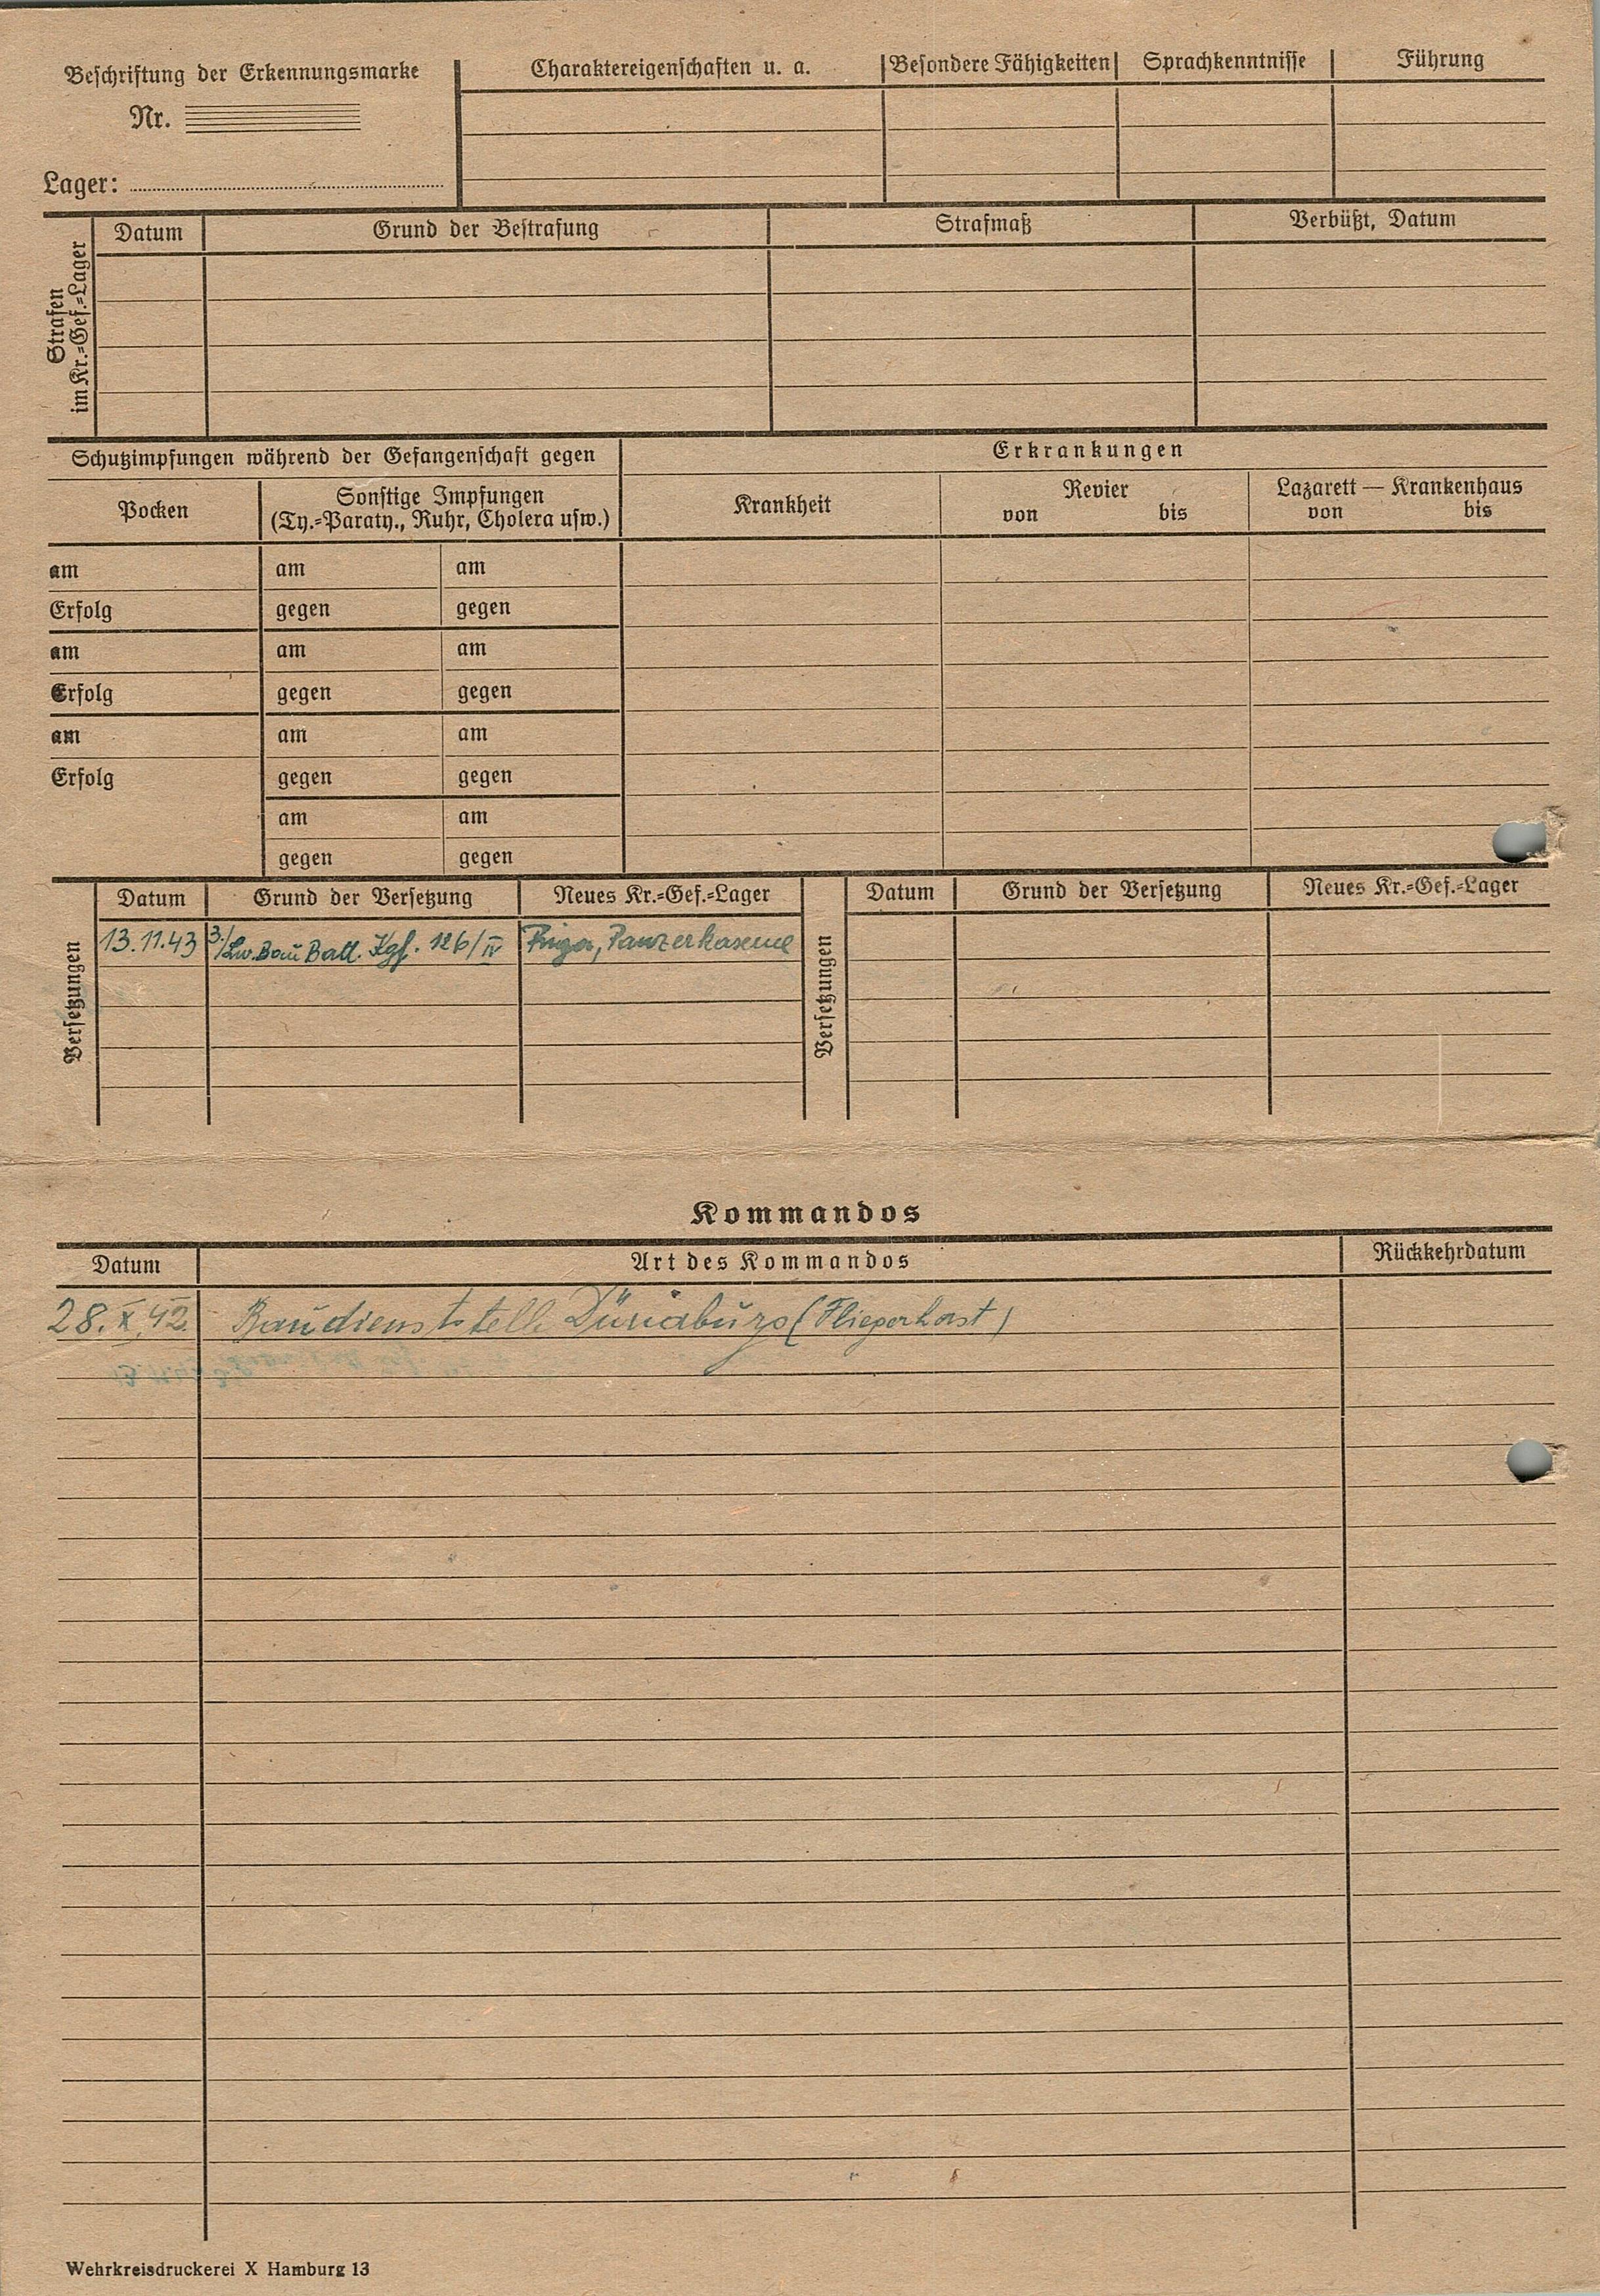 Beschriftung der Erkennungsmarke
Nr.
Lager:
Charaktereigenschaften u. a.
Besondere Fähigkeiten
Sprachkenntnisse
Führung
Strafen
im Kr.=Gef.=Lager
Datum
Grund der Bestrafung
Strafmaß
Verbüßt, Datum
Schutzimpfungen während der Gefangenschaft gegen
Pocken
Sonstige Impfungen
(Ty.=Paraty., Ruhr, Cholera usw.)
am am am
Erfolg gegen gegen
am am am
Erfolg gegen gegen
am am am
Erfolg gegen gegen
am am
gegen gegen
Erkrankungen
Krankheit
Revier
von bis
Lazarett — Krankenhaus
von bis
Versetzungen
Datum Grund der Versetzung Neues Kr.=Gef.=Lager
13.11.43 3./Lw. Bau Batl. Kgf. 126/IV Riga, Panzerkaserne
Versetzungen
Datum Grund der Versetzung Neues Kr.=Gef.=Lager
Kommandos
Datum Art des Kommandos Rückkehrdatum
28. X. 42. Baudienststelle Dünaburg (Fliegerhorst)
Wehrkreisdruckerei X Hamburg 13